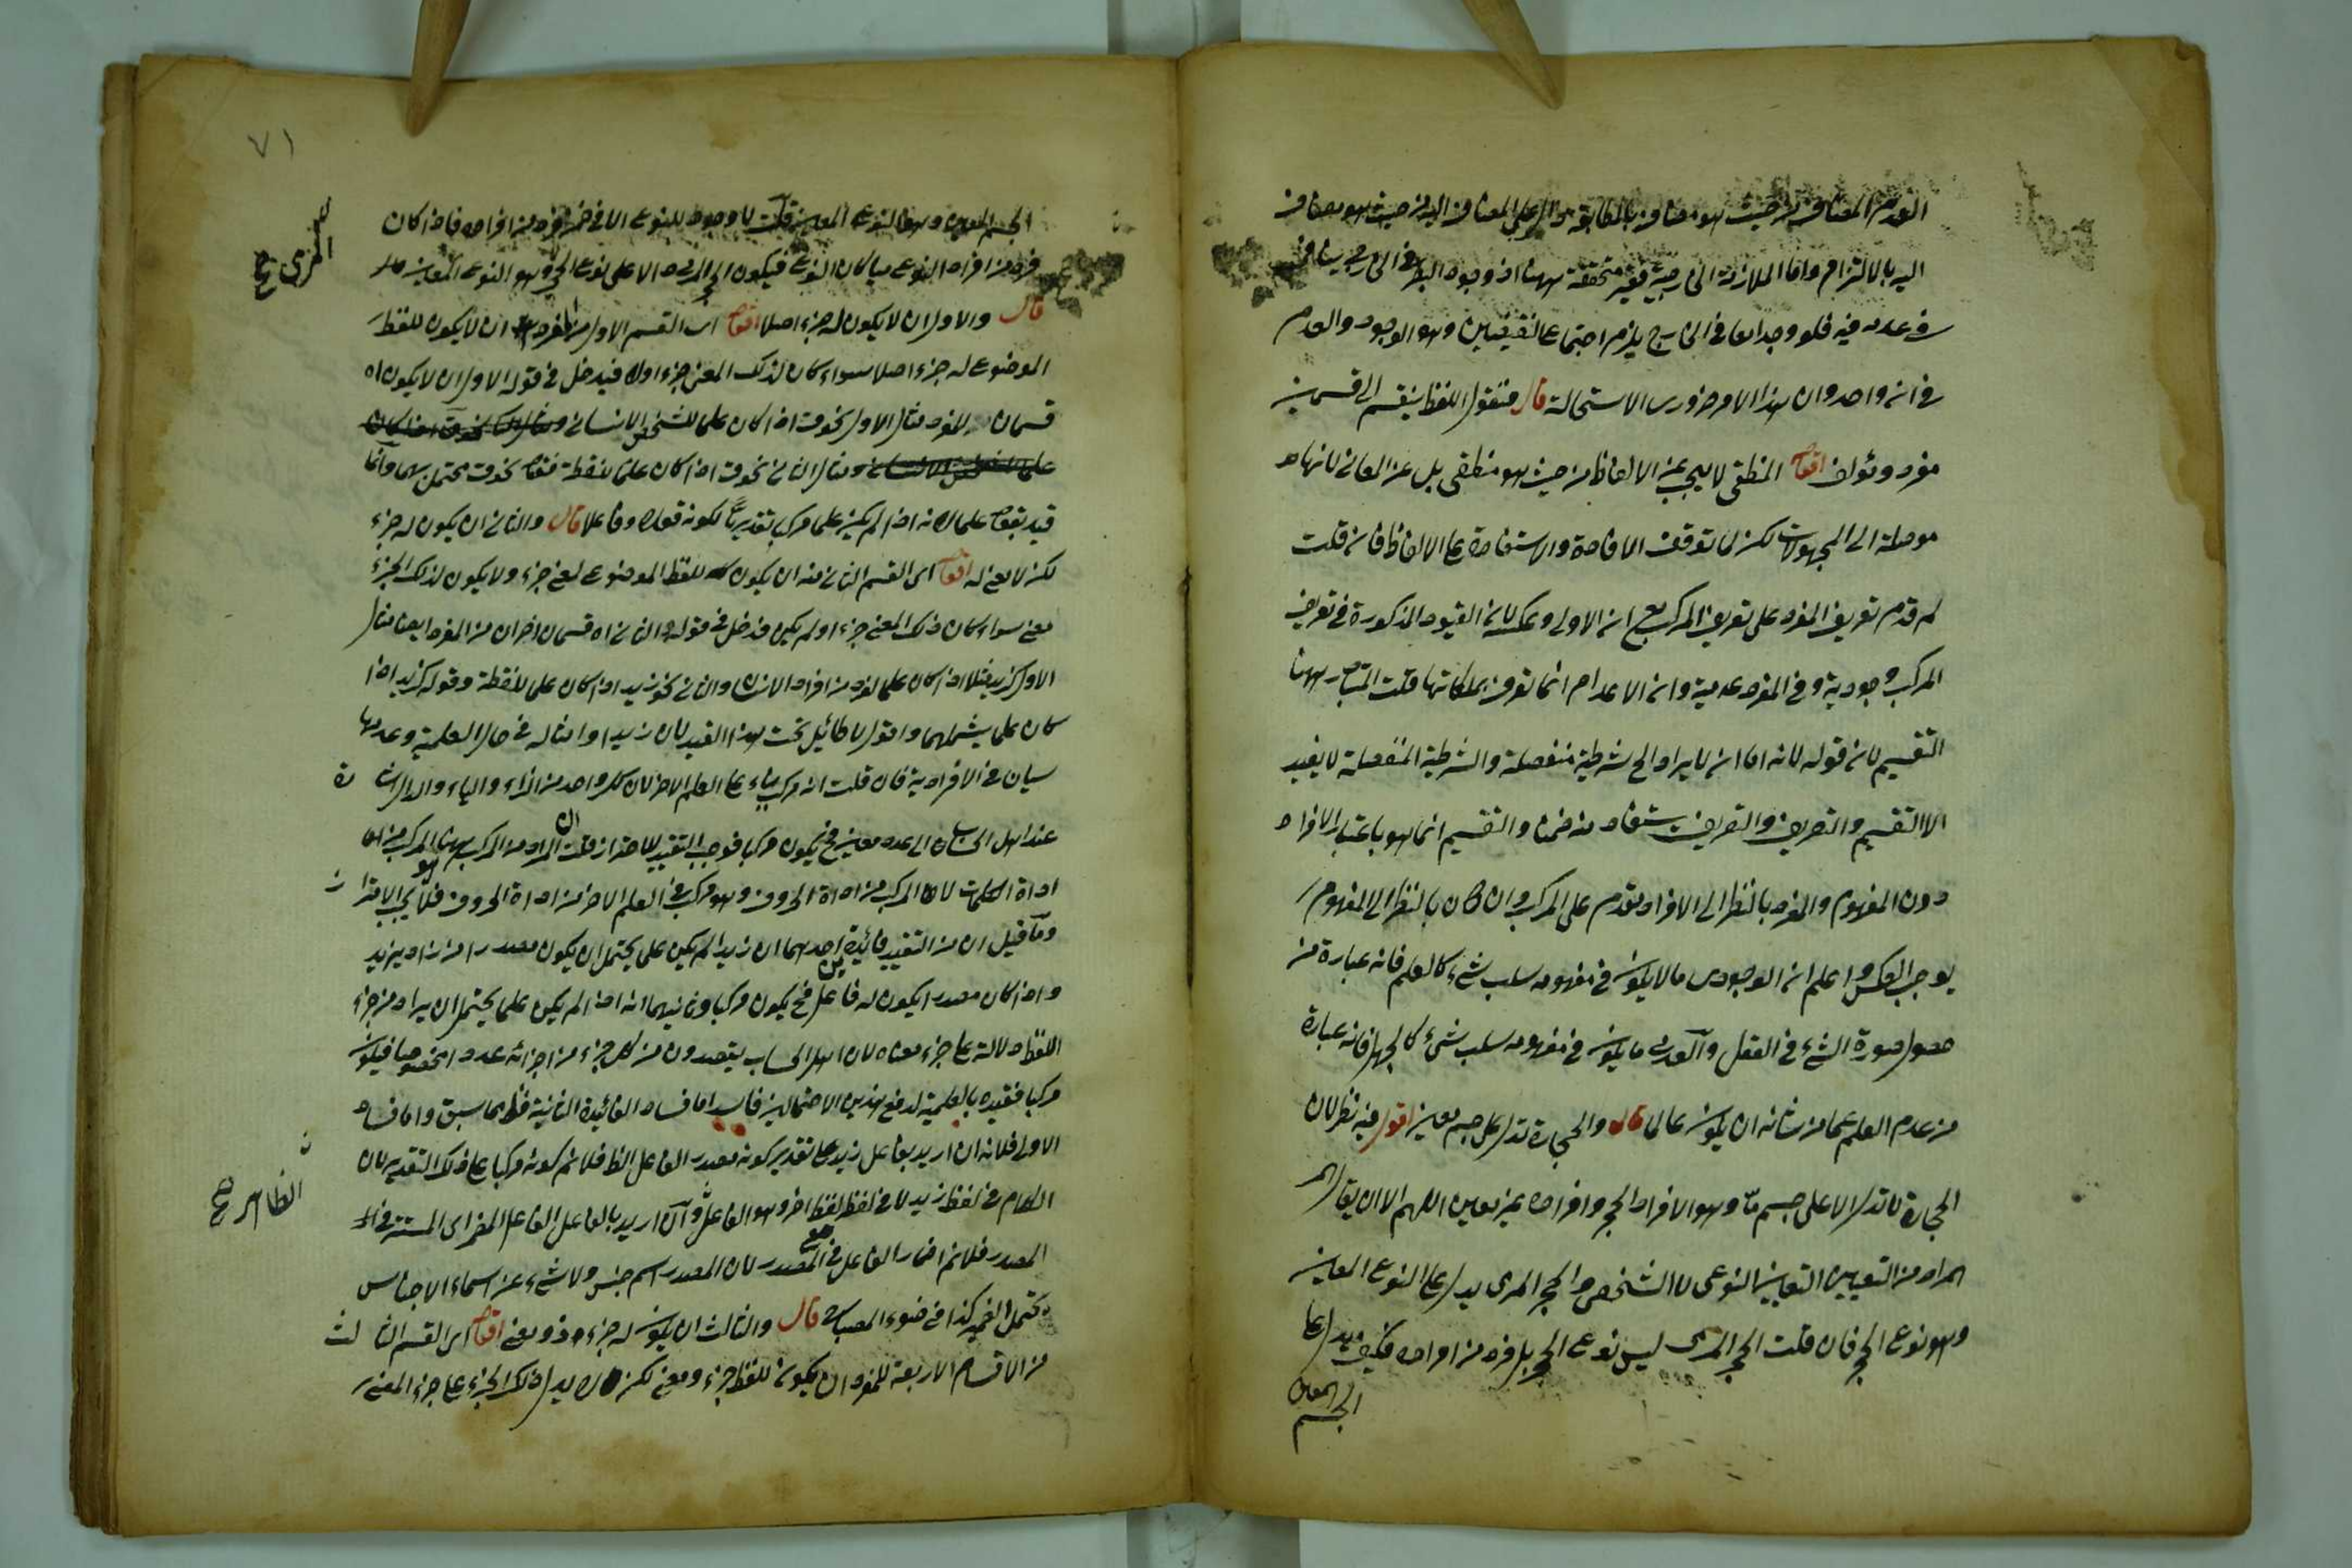 العدم المضاف من حيث هو مضاف بالمطابقة دال على المضاف اليه من حيث هو مضاف
اليه بالالتزام واما الملازمة الخارجية فغير متحققة ههنا اذ وجود البصر في الخارج ينافي
في عدمه فيه فلو وجدا معا في الخارج يلزم اجتماع النقيضين وهو الوجود والعدم
في آن واحد وان هذا الامر ضروري الاستحالة قال فنقول اللفظ ينقسم الى قسمين
مفرد ومؤلف اقول المنطقي لا يبحث عن الالفاظ من حيث هو منطقي بل عن المعاني لانها
موصلة الى المجهولات لكن لما توقف الافادة والاستفادة على الالفاظ فان قلت
لم قدم تعريف المفرد على تعريف المركب مع ان الاولى وعكسه لان القيود المذكورة في تعريف
المركب وجودية وفي المفرد عدمية وان الاعدام انما تعرف بملكاتها قلت المقام ههنا
التقسيم لان قوله لانه اما ان لا يراد الخ شرطية منفصلة والشرطية المنفصلة لا يفيد
الا التقسيم والتعريف والتعريف يستفاد منه ضمنا والتقسيم انما هو باعتبار الافراد
دون المفهوم والمفرد بالنظر الى الافراد يقدم على المركب وان كان بالنظر الى المفهوم
يوجب العكس واعلم ان الوجودي ما لا يكون في مفهومه سلب شيء كالعلم فانه عبارة من
حصول صورة الشيء في العقل والعدمي ما يكون في مفهومه سلب شيء كالجهل فانه عبارة
من عدم العلم عما من شانه ان يكون عالما قال والحجارة تدل على جسم معين اقول فيه نظر لان
الحجارة لا تدل الا على جسم ما وهو الافراد الحجر وافراده غير معين اللهم الا ان يقال
المراد من التعيين التعيين النوعي لا الشخصي والحجر المرمي يدل على النوع المعين
وهو نوع الحجر فان قلت الحجر المرمي ليس نوع الحجر بل فرد من افراده فكيف يدل على
الجسم المعين
٧١
الجسم المعين وهو النوع المعين قلت لا وجود للنوع الا في ضمن فرد من افراده فاذا كان
فرد من افراد النوع مرميا كان النوع فيكون الحجر المرمي دالا على نوع الحجر وهو النوع المعين
المرمي صح
قال والاول ان لا يكون له جزء اصلا اقول اي القسم الاول من المفرد ان لا يكون للفظ
الموضوع له جزء اصلا سواء كان لذلك المعنى جزء اولا فيدخل في قوله الاول ان لا يكون اه
قسمان للمفرد مثال الاول نحو ق اذا كان علما لشخص الانساني
ومثال الثاني نحو ق اذا كان علما لنقطة فقوله نحو ق يحتملهما وانما
قيد بقوله علما لانه اذا لم يكن علما مركب تقديرا لكونه فعلا وفاعلا قال والثاني ان يكون له جزء
لكن لا معنى له اقول اي القسم الثاني منه ان يكون للفظ الموضوع لمعنى جزء ولا يكون لذلك الجزء
معنى سواء كان ذلك المعنى جزء اولم يكن فدخل في قوله والثاني اه قسمان اخران من المفرد ايضا مثال
الاول كزيد مثلا اذا كان علما لفرد من افراد الانسان والثاني نحو زيد اذا كان علما لنقطة وقوله كزيد اذا
كان علما يشملهما واقول لا طائل تحت هذا القيد لان زيدا وامثاله في حال العلمية وعدمها
سيان في الافرادية فان قلت انه مركب بناء على العلم الاخر لان كل واحد من الزاء والياء والدال اشارة
عند اهل الحساب الى عدد معين فح يكون مركبا فوجب التقييد للاحتراز قلت المراد من المركب ههنا المركب من
اداة الكلمات لا المركب من اداة الحروف وهو مركب في العلم الاخر من اداة الحروف فلا يجب الاحتراز
وما قيل ان من التقييد فائدتين احدهما ان زيدا لم يكن علما يحتمل ان يكون مصدرا من زاد يزيد
واذا كان مصدرا يكون له فاعل فح يكون مركبا وثانيهما انه اذا لم يكن علما يحتمل ان يراد من جزء
اللفظ دلالة على جزء معناه لان اهل الحساب يقصدون من كل جزء من اجزائه عددا مخصوصا فيكون
مركبا فقيده بالعلمية لدفع هذين الاحتمالين فاسد اما فساد الفائدة الثانية فظ مما سبق واما فساد
الاولى فلانه ان اريد بفاعل زيد على تقدير كونه مصدرا الفاعل الظ فلانم كونه مركبا على ذلك التقدير لان
الظاهر صح
الكلام في لفظ زيد لا في لفظ لفظ اخر وهو الفاعل وان اريد بالفاعل الفاعل المضمر اي المستتر في
المصدر فلانم اضمار الفاعل في المصدر لان المصدر اسم جنس ولا شيء من اسماء الاجناس
يحتمل الضمير كذا في ضوء المصباح قال والثالث ان يكون له جزء ذو معنى اقول اي القسم الثالث
من الاقسام الاربعة للمفرد ان يكون للفظ جزء ومعنى لكن لا يدل ذلك الجزء على جزء المعنى